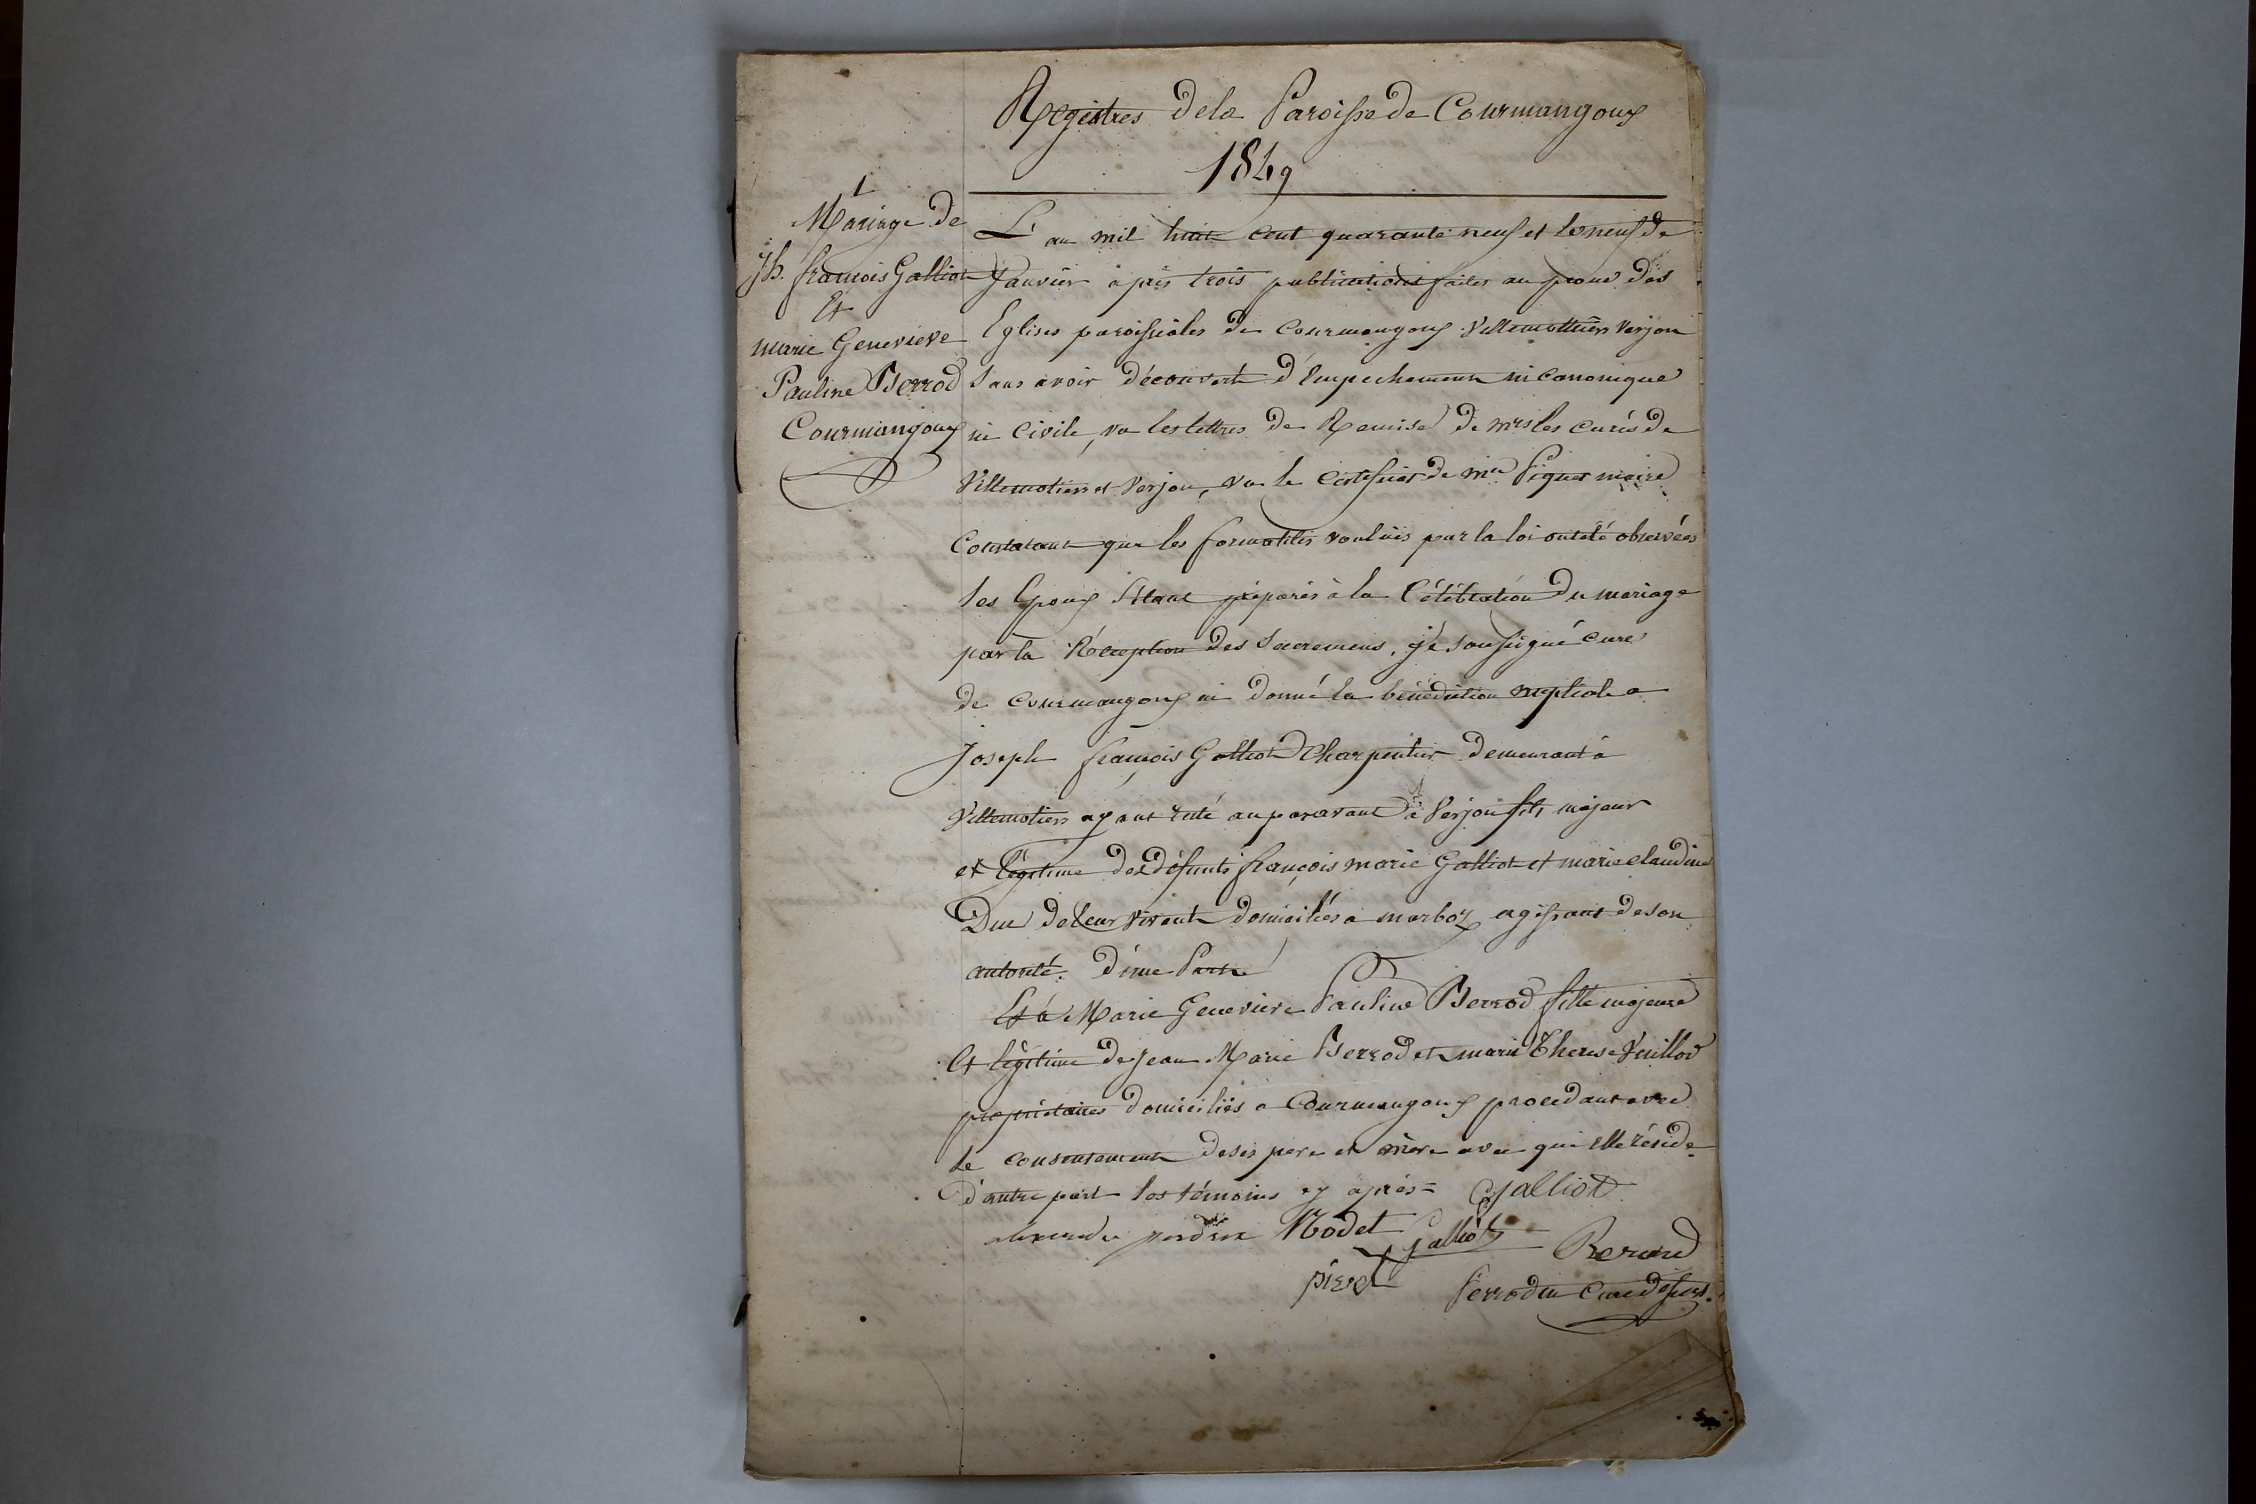 Registres de la Paroisse de Courmangoux
1849
1
Mariage de
Jh. françois Galliot
Et
marie Genevieve
Pauline Berrod
Courmangoux
L'an mil huit cent quarante neuf et le neuf de
Janvier après trois publications faites au prone des
Eglises paroissiales de Courmangoux Villemottiers Verjon
sans avoir découvert d'Empechement ni canonique
ni Civile, vu les lettres de Remise de mrs les curés de
Villemotiers et Verjon, vu le Certificat de mr Piquet maire
Constatant que les formalités voulues par la loi ont été observées
les Epoux s'étant préparés à la Célébration du mariage
par la Réception des Sacremens, je soussigné curé
de Courmangoux ai donné la bénédiction nuptiale a
Joseph françois Galliot Charpentier demeurant à
Villemotiers ayant resté auparavant à Verjon fils majeur
et légitime des défunts françois marie Galliot et marie claudine
Duc de leur vivant domiciliés a marboz agissant de son
autorité. d'une Part
Et à Marie Genevieve Pauline Berrod fille majeure
Et légitime de jean Marie Berrod et marie Therese Vuillod
propriétaires domiciliés a Courmangoux procedant avec
le consentement de ses pere et mère avec qui elle réside
d'autre part les témoins cy après= Galliot
alexandre perdrix Nodet Galliot
Berard
piret
Perrodin Curé desserv.